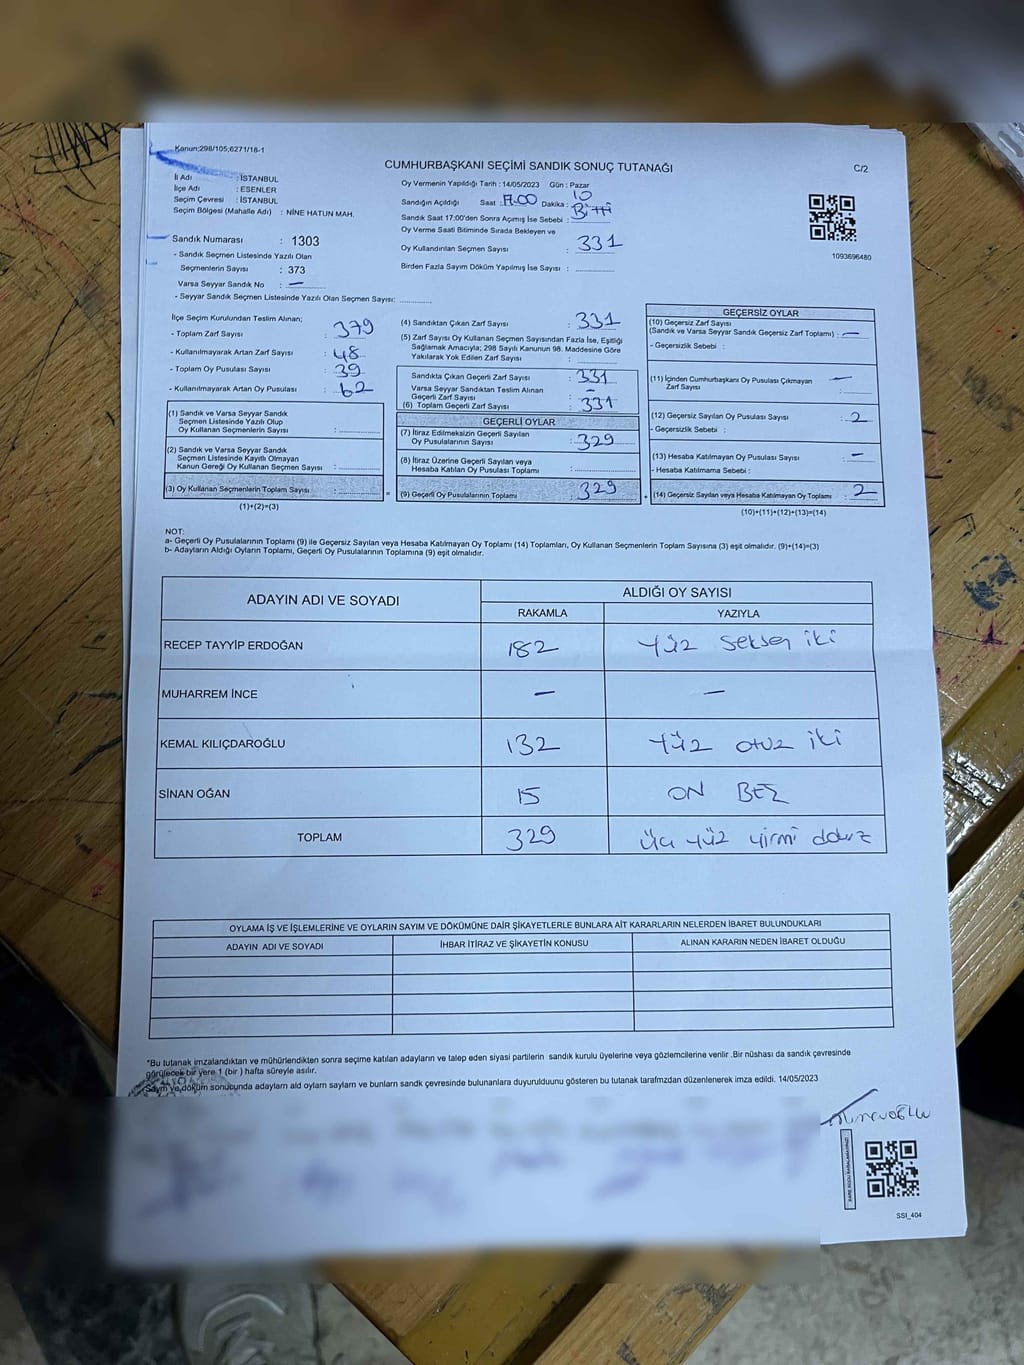 Kanun;298/105;6271/18-1
CUMHURBAŞKANI SEÇİMİ SANDIK SONUÇ TUTANAĞI
C/2
İl Adı : İSTANBUL
İlçe Adı : ESENLER
Seçim Çevresi : İSTANBUL
Seçim Bölgesi (Mahalle Adı) : NİNE HATUN MAH.
Sandık Numarası : 1303
- Sandık Seçmen Listesinde Yazılı Olan
Seçmenlerin Sayısı : 373
Varsa Seyyar Sandık No : —
- Seyyar Sandık Seçmen Listesinde Yazılı Olan Seçmen Sayısı: ............
Oy Vermenin Yapıldığı Tarih : 14/05/2023 Gün : Pazar
Sandığın Açıldığı Saat : 17.00 Dakika : 10
Sandık Saat 17:00'den Sonra Açımış İse Sebebi : Bitti
Oy Verme Saati Bitiminde Sırada Bekleyen ve
Oy Kullandırılan Seçmen Sayısı : 331
Birden Fazla Sayım Döküm Yapılmış İse Sayısı : ............
1093696480
İlçe Seçim Kurulundan Teslim Alınan;
- Toplam Zarf Sayısı : 379
- Kullanılmayarak Artan Zarf Sayısı : 48
- Toplam Oy Pusulası Sayısı : 39
- Kullanılmayarak Artan Oy Pusulası : 62
(1) Sandık ve Varsa Seyyar Sandık
Seçmen Listesinde Yazılı Olup
Oy Kullanan Seçmenlerin Sayısı : ............
(2) Sandık ve Varsa Seyyar Sandık
Seçmen Listesinde Kayıtlı Olmayan
Kanun Gereği Oy Kullanan Seçmen Sayısı : ............
(3) Oy Kullanan Seçmenlerin Toplam Sayısı : ............ =
(1)+(2)=(3)
(4) Sandıktan Çıkan Zarf Sayısı : 331
(5) Zarf Sayısı Oy Kullanan Seçmen Sayısından Fazla İse, Eşitliği
Sağlamak Amacıyla; 298 Sayılı Kanunun 98. Maddesine Göre
Yakılarak Yok Edilen Zarf Sayısı : ............
Sandıkta Çıkan Geçerli Zarf Sayısı : 331
Varsa Seyyar Sandıktan Teslim Alınan
Geçerli Zarf Sayısı : —
(6) Toplam Geçerli Zarf Sayısı : 331
GEÇERLİ OYLAR
(7) İtiraz Edilmeksizin Geçerli Sayılan
Oy Pusulalarının Sayısı : 329
(8) İtiraz Üzerine Geçerli Sayılan veya
Hesaba Katılan Oy Pusulası Toplamı : ............
(9) Geçerli Oy Pusulalarının Toplamı : 329 +
GEÇERSİZ OYLAR
(10) Geçersiz Zarf Sayısı
(Sandık ve Varsa Seyyar Sandık Geçersiz Zarf Toplamı) : —
- Geçersizlik Sebebi :
(11) İçinden Cumhurbaşkanı Oy Pusulası Çıkmayan —
Zarf Sayısı : ............
(12) Geçersiz Sayılan Oy Pusulası Sayısı : 2
- Geçersizlik Sebebi :
(13) Hesaba Katılmayan Oy Pusulası Sayısı : —
- Hesaba Katılmama Sebebi :
(14) Geçersiz Sayılan veya Hesaba Katılmayan Oy Toplamı : 2
(10)+(11)+(12)+(13)=(14)
NOT:
a- Geçerli Oy Pusulalarının Toplamı (9) ile Geçersiz Sayılan veya Hesaba Katılmayan Oy Toplamı (14) Toplamları, Oy Kullanan Seçmenlerin Toplam Sayısına (3) eşit olmalıdır. (9)+(14)=(3)
b- Adayların Aldığı Oyların Toplamı, Geçerli Oy Pusulalarının Toplamına (9) eşit olmalıdır.
ADAYIN ADI VE SOYADI
ALDIĞI OY SAYISI
RAKAMLA YAZIYLA
RECEP TAYYİP ERDOĞAN 182 Yüz Seksen iki
MUHARREM İNCE — —
KEMAL KILIÇDAROĞLU 132 Yüz otuz iki
SİNAN OĞAN 15 ON BEŞ
TOPLAM 329 üç yüz yirmi dokuz
OYLAMA İŞ VE İŞLEMLERİNE VE OYLARIN SAYIM VE DÖKÜMÜNE DAİR ŞİKAYETLERLE BUNLARA AİT KARARLARIN NELERDEN İBARET BULUNDUKLARI
ADAYIN ADI VE SOYADI İHBAR İTİRAZ VE ŞİKAYETİN KONUSU ALINAN KARARIN NEDEN İBARET OLDUĞU
*Bu tutanak imzalandıktan ve mühürlendikten sonra seçime katılan adayların ve talep eden siyasi partilerin sandık kurulu üyelerine veya gözlemcilerine verilir .Bir nüshası da sandık çevresinde
görülecek bir yere 1 (bir ) hafta süreyle asılır.
Sayım ve döküm sonucunda adayların ald oyların sayların ve bunların sandk çevresinde bulunanlara duyurulduunu gösteren bu tutanak tarafmzdan düzenlenerek imza edildi. 14/05/2023
SSI_404